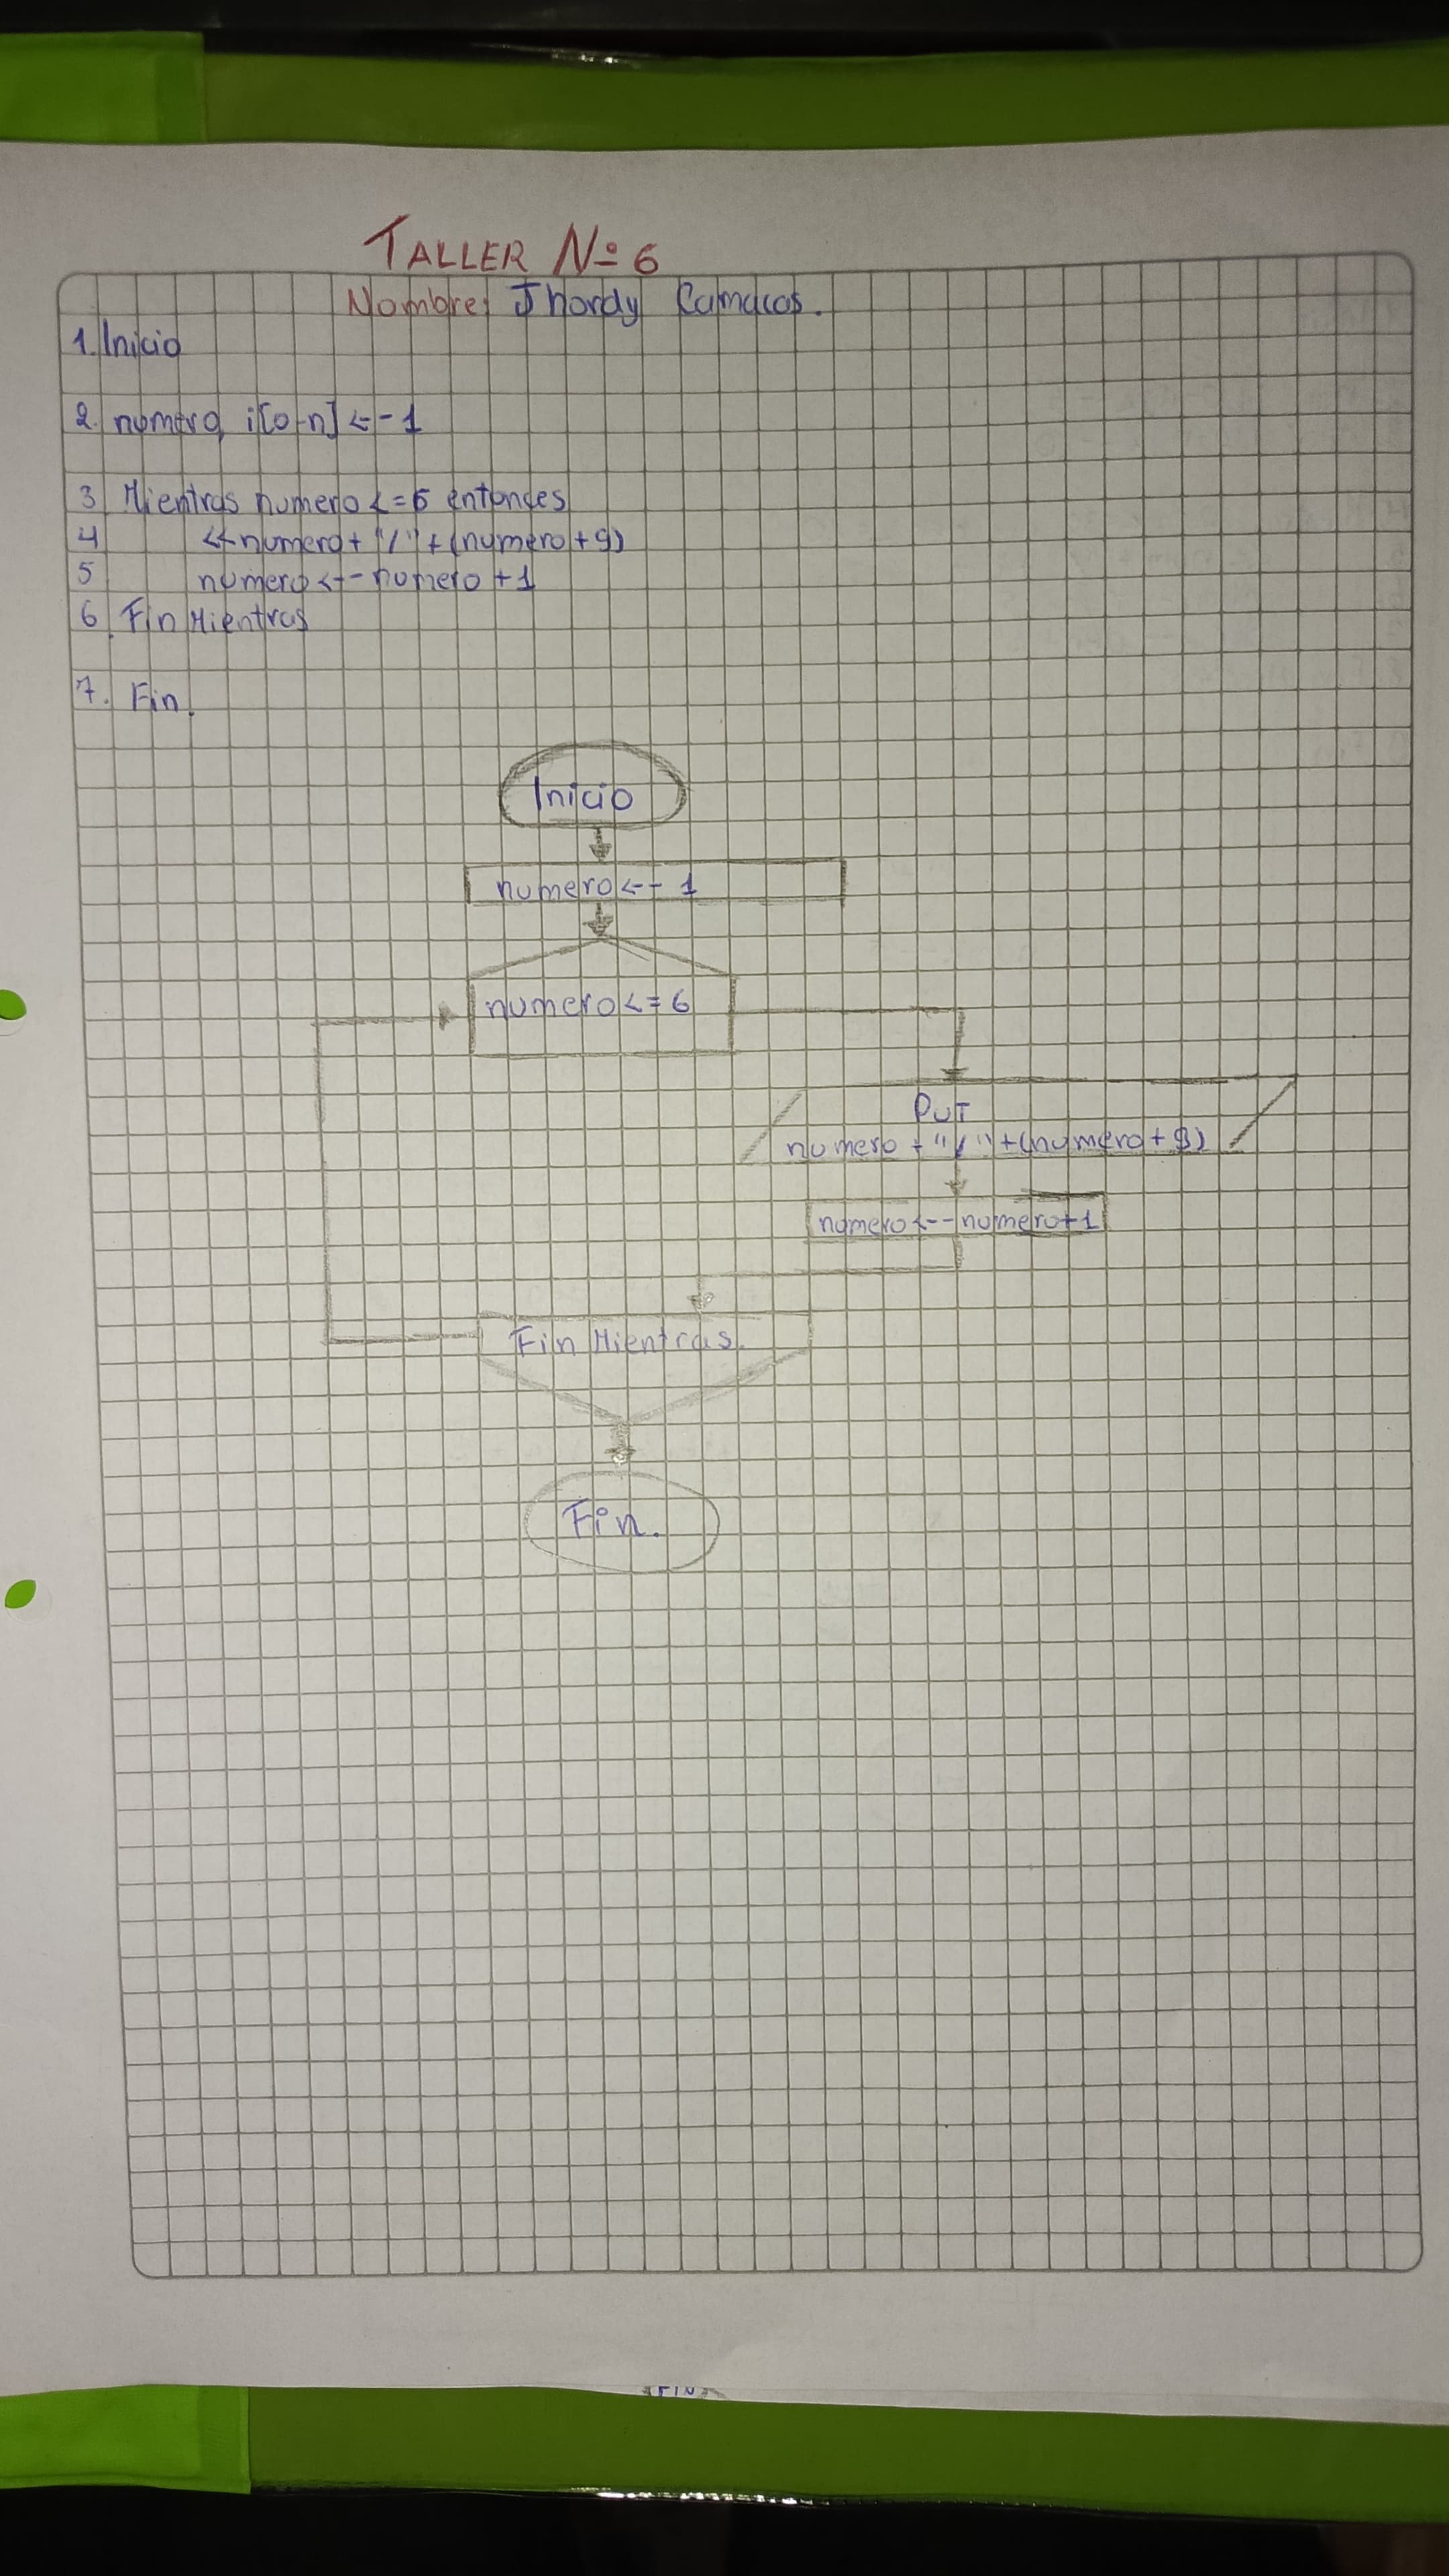 TALLER Nº 6
Nombre: Jhordy Camacos.
1. Inicio
2. numero, i[0-n] <-- 1
3 Mientras numero <= 6 entonces
4 << numero + "/" + (numero + 9)
5 numero <-- numero + 1
6. Fin Mientras
7. Fin.
Inicio
numero <-- 1
numero <= 6
PUT
numero + "/" + (numero + 9)
numero <-- numero + 1
Fin Mientras.
Fin.
FIN